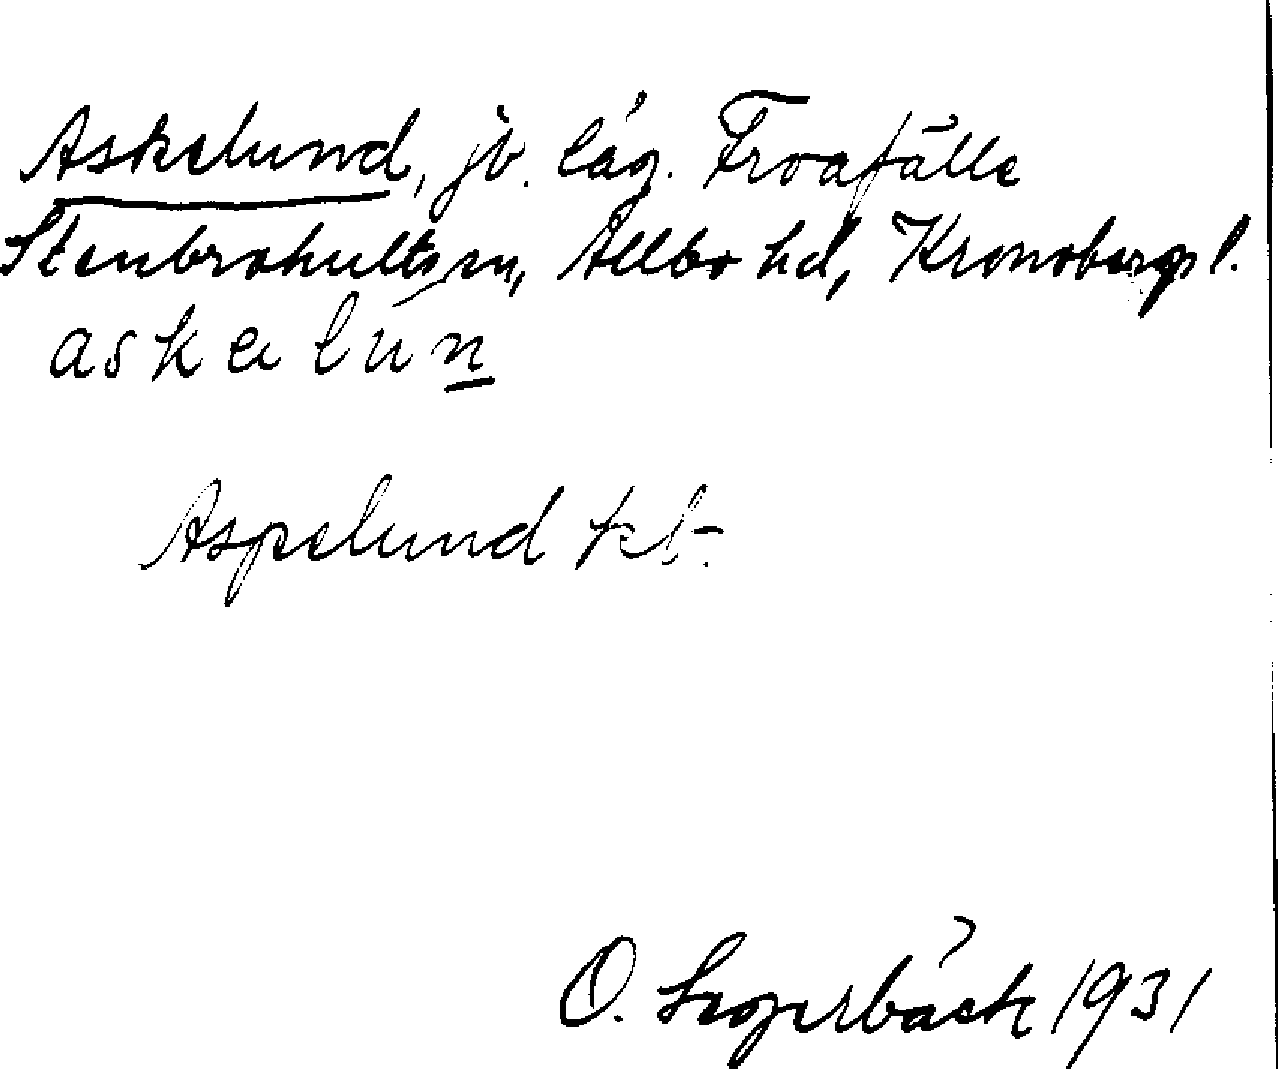 Askelund, jb. läg. Froafälle
Stenbrohults sn, Allbo hd, Kronobergs l.
askelún
Aspelund kt.
O. Segerbäck 1931